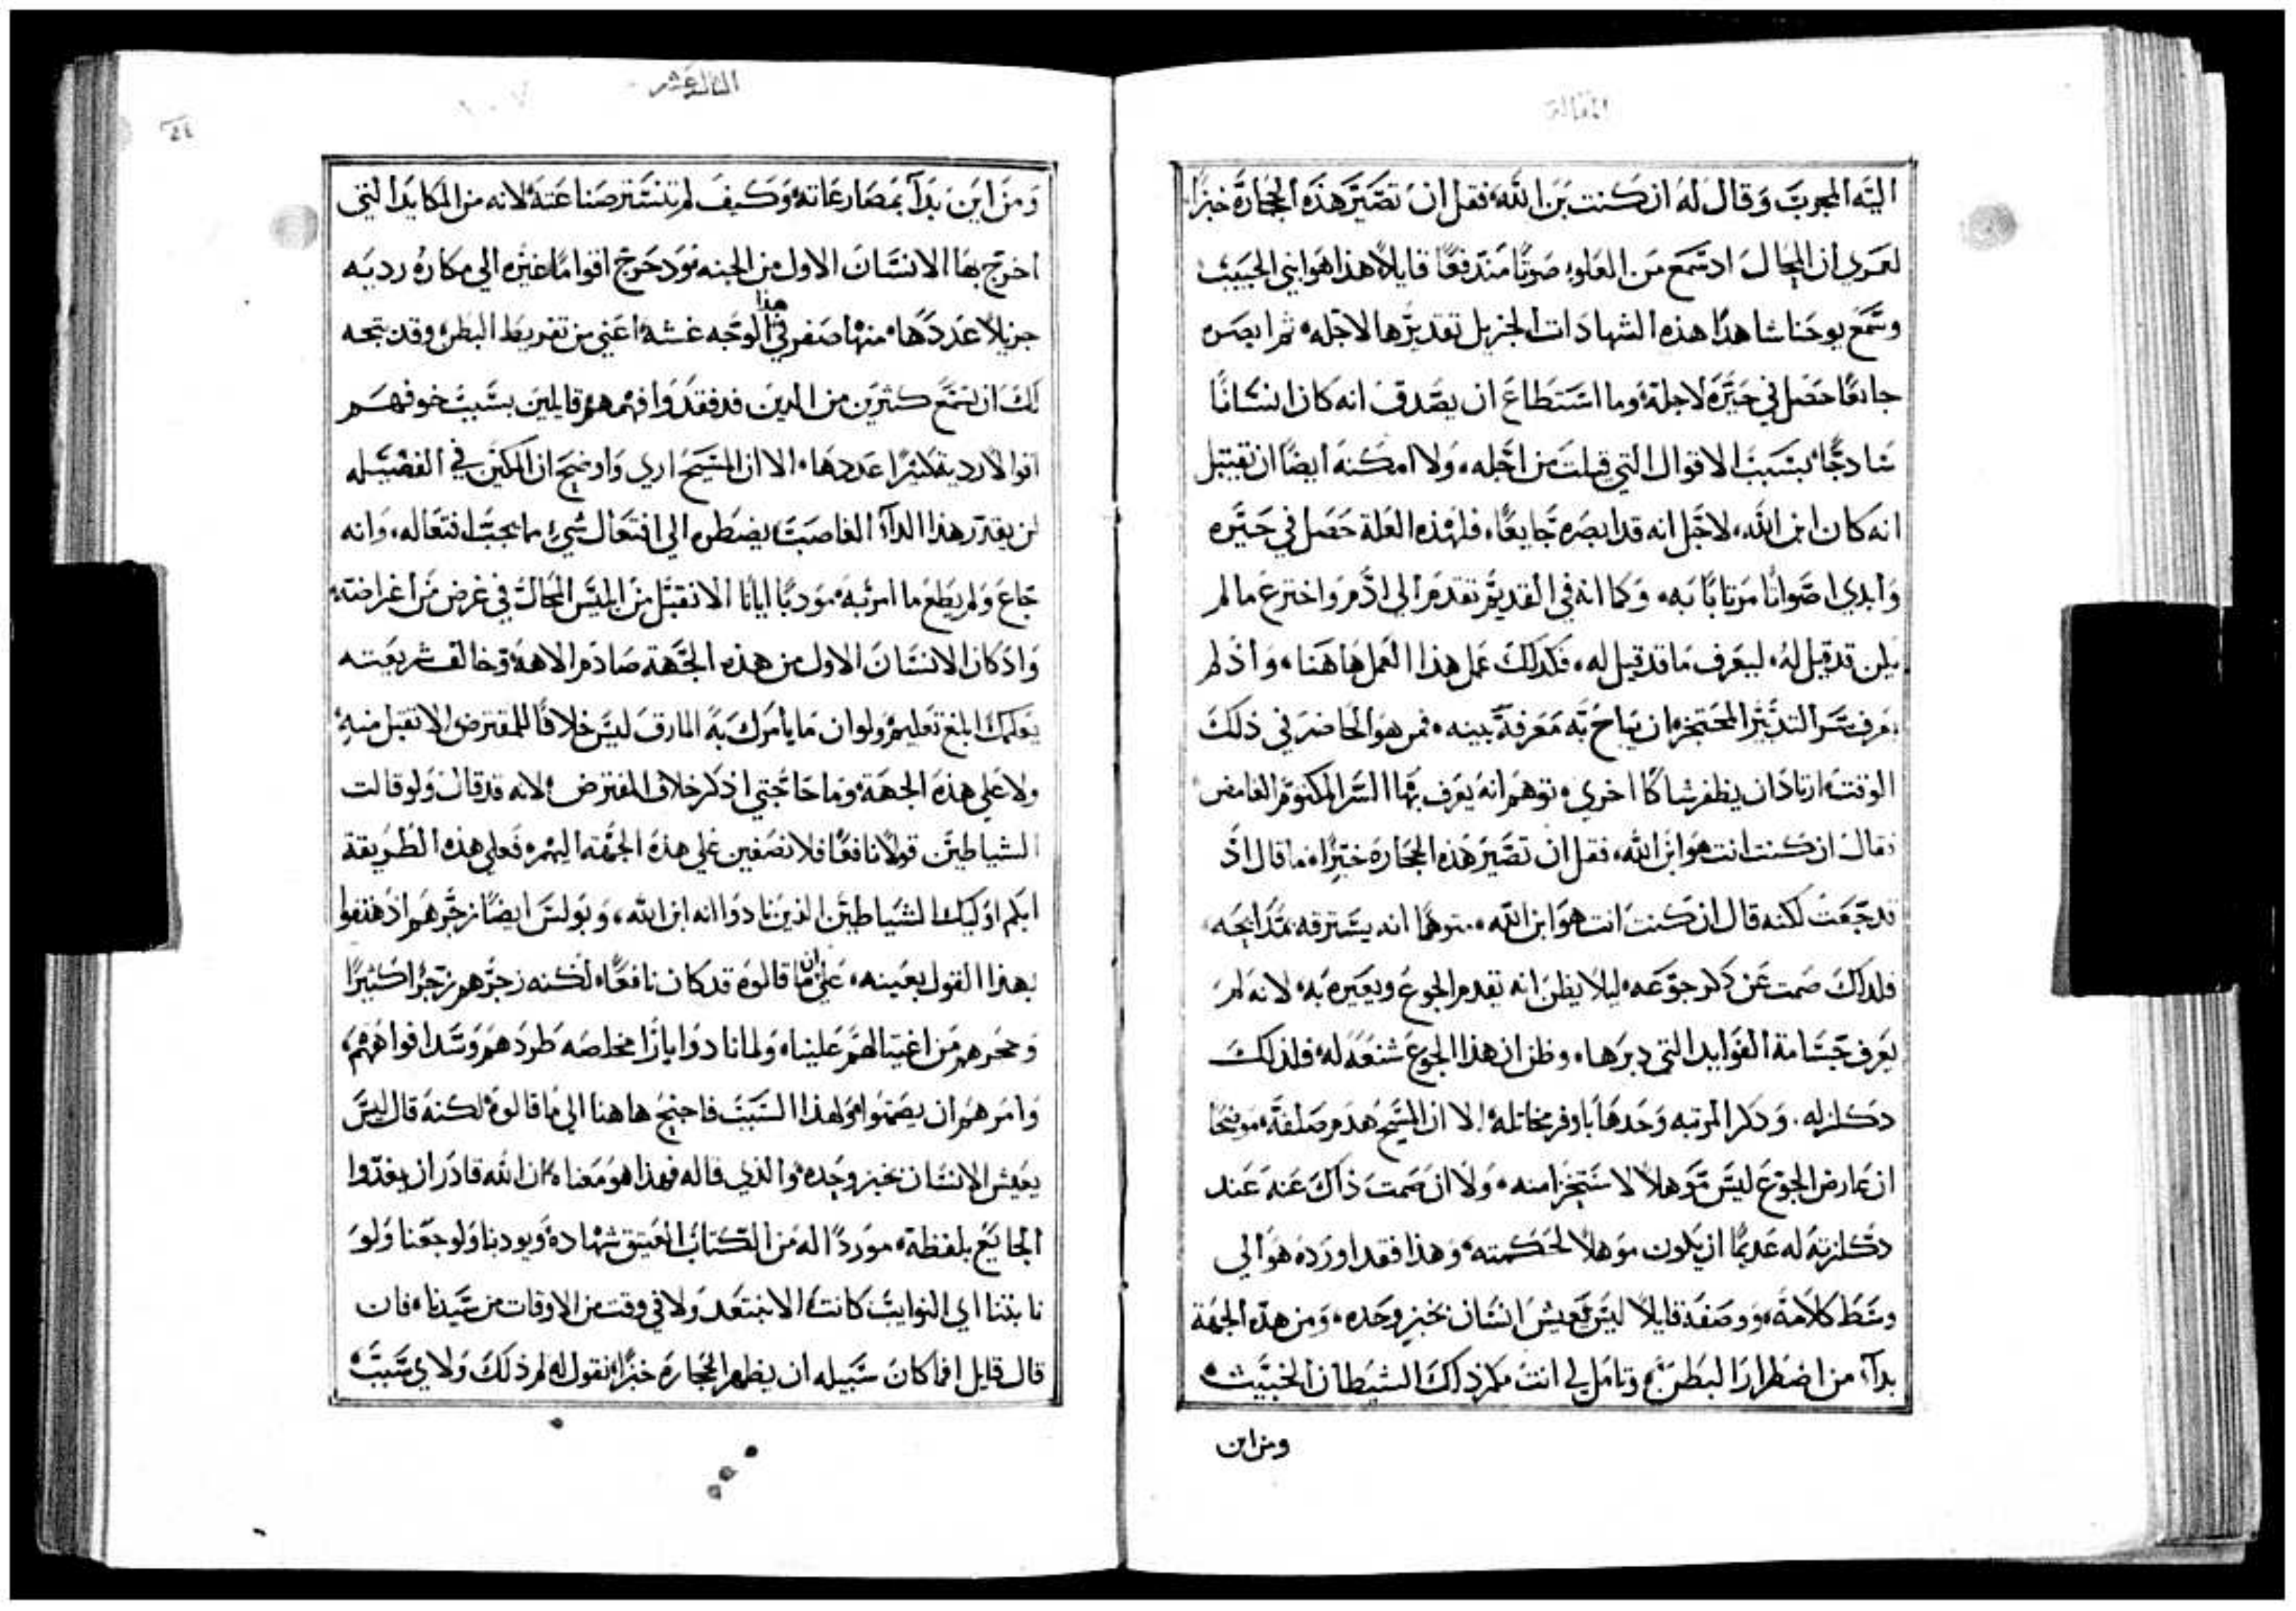 المقالة
اليه المجرب وقال له ان كنت بن الله فقل ان تصير هذه الحجارة خبزًا
لعمري ان المحال اذ سمع من العلو صوتًا مندفعًا قايلاً هذا هو ابني الحبيب
وسمع يوحنا شاهدًا هذه الشهادات الجزيل تقديرها لاجله ثم ابصره
جايعًا حصل في حيره لاجله وما استطاع ان يصدق انه كان انسانًا
شادجًا بسبب الاقوال التي قيلت من اجله ولا امكنه ايضًا ان يقتبل
انه كان ابن الله لاجل انه قد ابصره جايعًا فلهذه العلة حصل في حيره
وابدي اصواتًا مرتابًا به وكما انه في القديم تقدم الي ادم واخترع ما لم
يكن قد قيل له ليعرف ما قد قيل له فكذلك عمل هذا العمل هاهنا واذ لم
يعرف سر التدبير المحتجز ان يباح به معرفة بينه فمن هو الحاضر في ذلك
الوقت ارتاد ان يظفر شاكًا اخري توهم انه يعرف بها السر المكتوم الغامض
فقال ان كنت انت هو ابن الله فقل ان تصير هذه الحجارة خبزًا ما قال اذ
قد جعت لكنه قال ان كنت انت هو ابن الله متوهمًا انه يسترقه بمدايحه
فلذلك صمت عن ذكر جوعه ليلا يظن انه يقدم الجوع ويعيره به لانه لم
يعرف جسامة الفوايد التي دبرها وظن ان هذا الجوع شنعه له فلذلك
دكلز له وذكر المرتبه وحدها باوفر مخاتله الا ان المسيح هدم صلفه موضحًا
ان عارض الجوع ليس موهلاً لاستخزا منه ولا ان صمت ذاك عنه عند
دكلزته له عديمًا ان يكون موهلاً لحكمته وهذا فقد اورده هو الي
وسط كلامه ووصفه قايلاً ليس يعيش انسان بخبز وحده ومن هذه الجهة
بدآ من اضطرار البطن وتامل لي انت مكر ذلك الشيطان الخبيث
ومن اين
الثالثة عشر
ومن اين بدآ بمصارعاته وكيف لم تتستر صناعته لانه من المكايد التي
اخرج بها الانسان الاول من الجنه ودحرج اقوامًا غيره الي مكاره رديه
جزيلاً عددها منها ضفر في هذا الوجه غشه اعني من تفريط البطن وقد يتجه
لك ان تسمع كثيرين من الذين قد فقدوا فهمهم قايلين بسبب خوفهم
اتوا لارديه كثيرًا عددها الا ان المسيح اري واوضح ان المكين في الفضيله
لن يقتدر هذا الدآ الغاصب يضطره الي افتعال شيء ما يجب افتعاله وانه
جاع ولم يطع ما امر به مودبًا ايانا الا نقبل من ابليس المحال في غرض من اغراضه
واذ كان الانسان الاول من هذه الجهة صادم الاهه وخالف شريعته
يعلمك ابلغ تعليم ولو ان ما يأمرك به المارق ليس خلافًا للمفترض الا تقبل منه
ولا علي هذه الجهة وما حاجتي اذكر خلاف المفترض لانه قد قال ولو قالت
الشياطين قولاً نافعًا فلا نصغين علي هذه الجهه اليهم فعلي هذه الطريقة
ابكم اوليك الشياطين الذين نادوا انه ابن الله وبولس ايضًا زجرهم اذ هتفوا
بهذا القول بعينه علي ان ما قالوه قد كان نافعًا لكنه زجرهم زجرًا كثيرًا
وحجرهم من اغتيالهم علينا ولما نادوا بارًا مخلصه طردهم وسد افواههم
وامرهم ان يصمتوا ولهذا السبب فاحتج هاهنا الي ما قالوه لكنه قال ليس
يعيش الانسان بخبز وحده والذي قاله فهذا هو معناه ان الله قادر ان يغدوا
الجايع بلفظة موردًا له من الكتاب العتيق شهادة ويودبنا ولو جعنا ولو
نابتنا اي النوايب كانت الا نبتعد ولا في وقت من الاوقات من سيدنا فان
قال قايل افما كان سبيله ان يظهر الحجارة خبزًا نقول له لم ذلك ولاي سبب